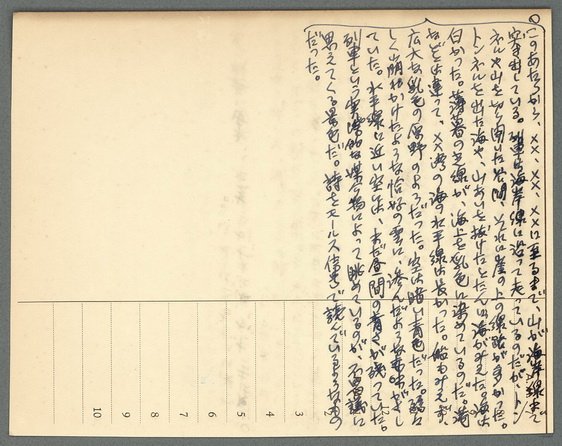 このあたりから、××、××、××に至るまで、山が海岸線まで
突き出している。列車は海岸線に沿って走っているのだが、トン
ネルや山を切り開いた谷間、それに崖の上の線路が多かった。
トンネルを出た海や、山あいを抜けたとたんに海がみえた。海は
白かった。薄暮の光線が、海上を乳色に染めているのだ。湾
などとは違って、××湾の海の水平線は長かった。船もみえず、
広大な乳色の原野のようだった。空は暗い青色だった。
しく崩れかけたような恰好の雲に、滲んだような
ていた。水平線に近い空は、まだ昼間の青さが残っていた。
列車という実際的な媒介物によって眺めているのが、不思議に
思えてくる景色だ。詩をモールス信号で読んでいるようなもの
だった。
3
4
5
6
7
8
9
10